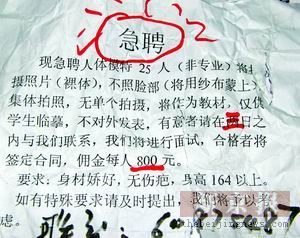 急聘
现急聘人体模特25人（非专业）将拍
摄照片（裸体），不照脸部（将用纱布蒙上）
集体拍照，无单个拍摄，将作为教材，仅供
学生临摹，不对外发表，有意者请在三日之
内与我们联系，我们将进行面试，合格者将
签定合同，佣金每人800元。
要求：身材娇好，无伤疤，身高164以上。
如有特殊要求请及时提出，我们将予以考
虑。